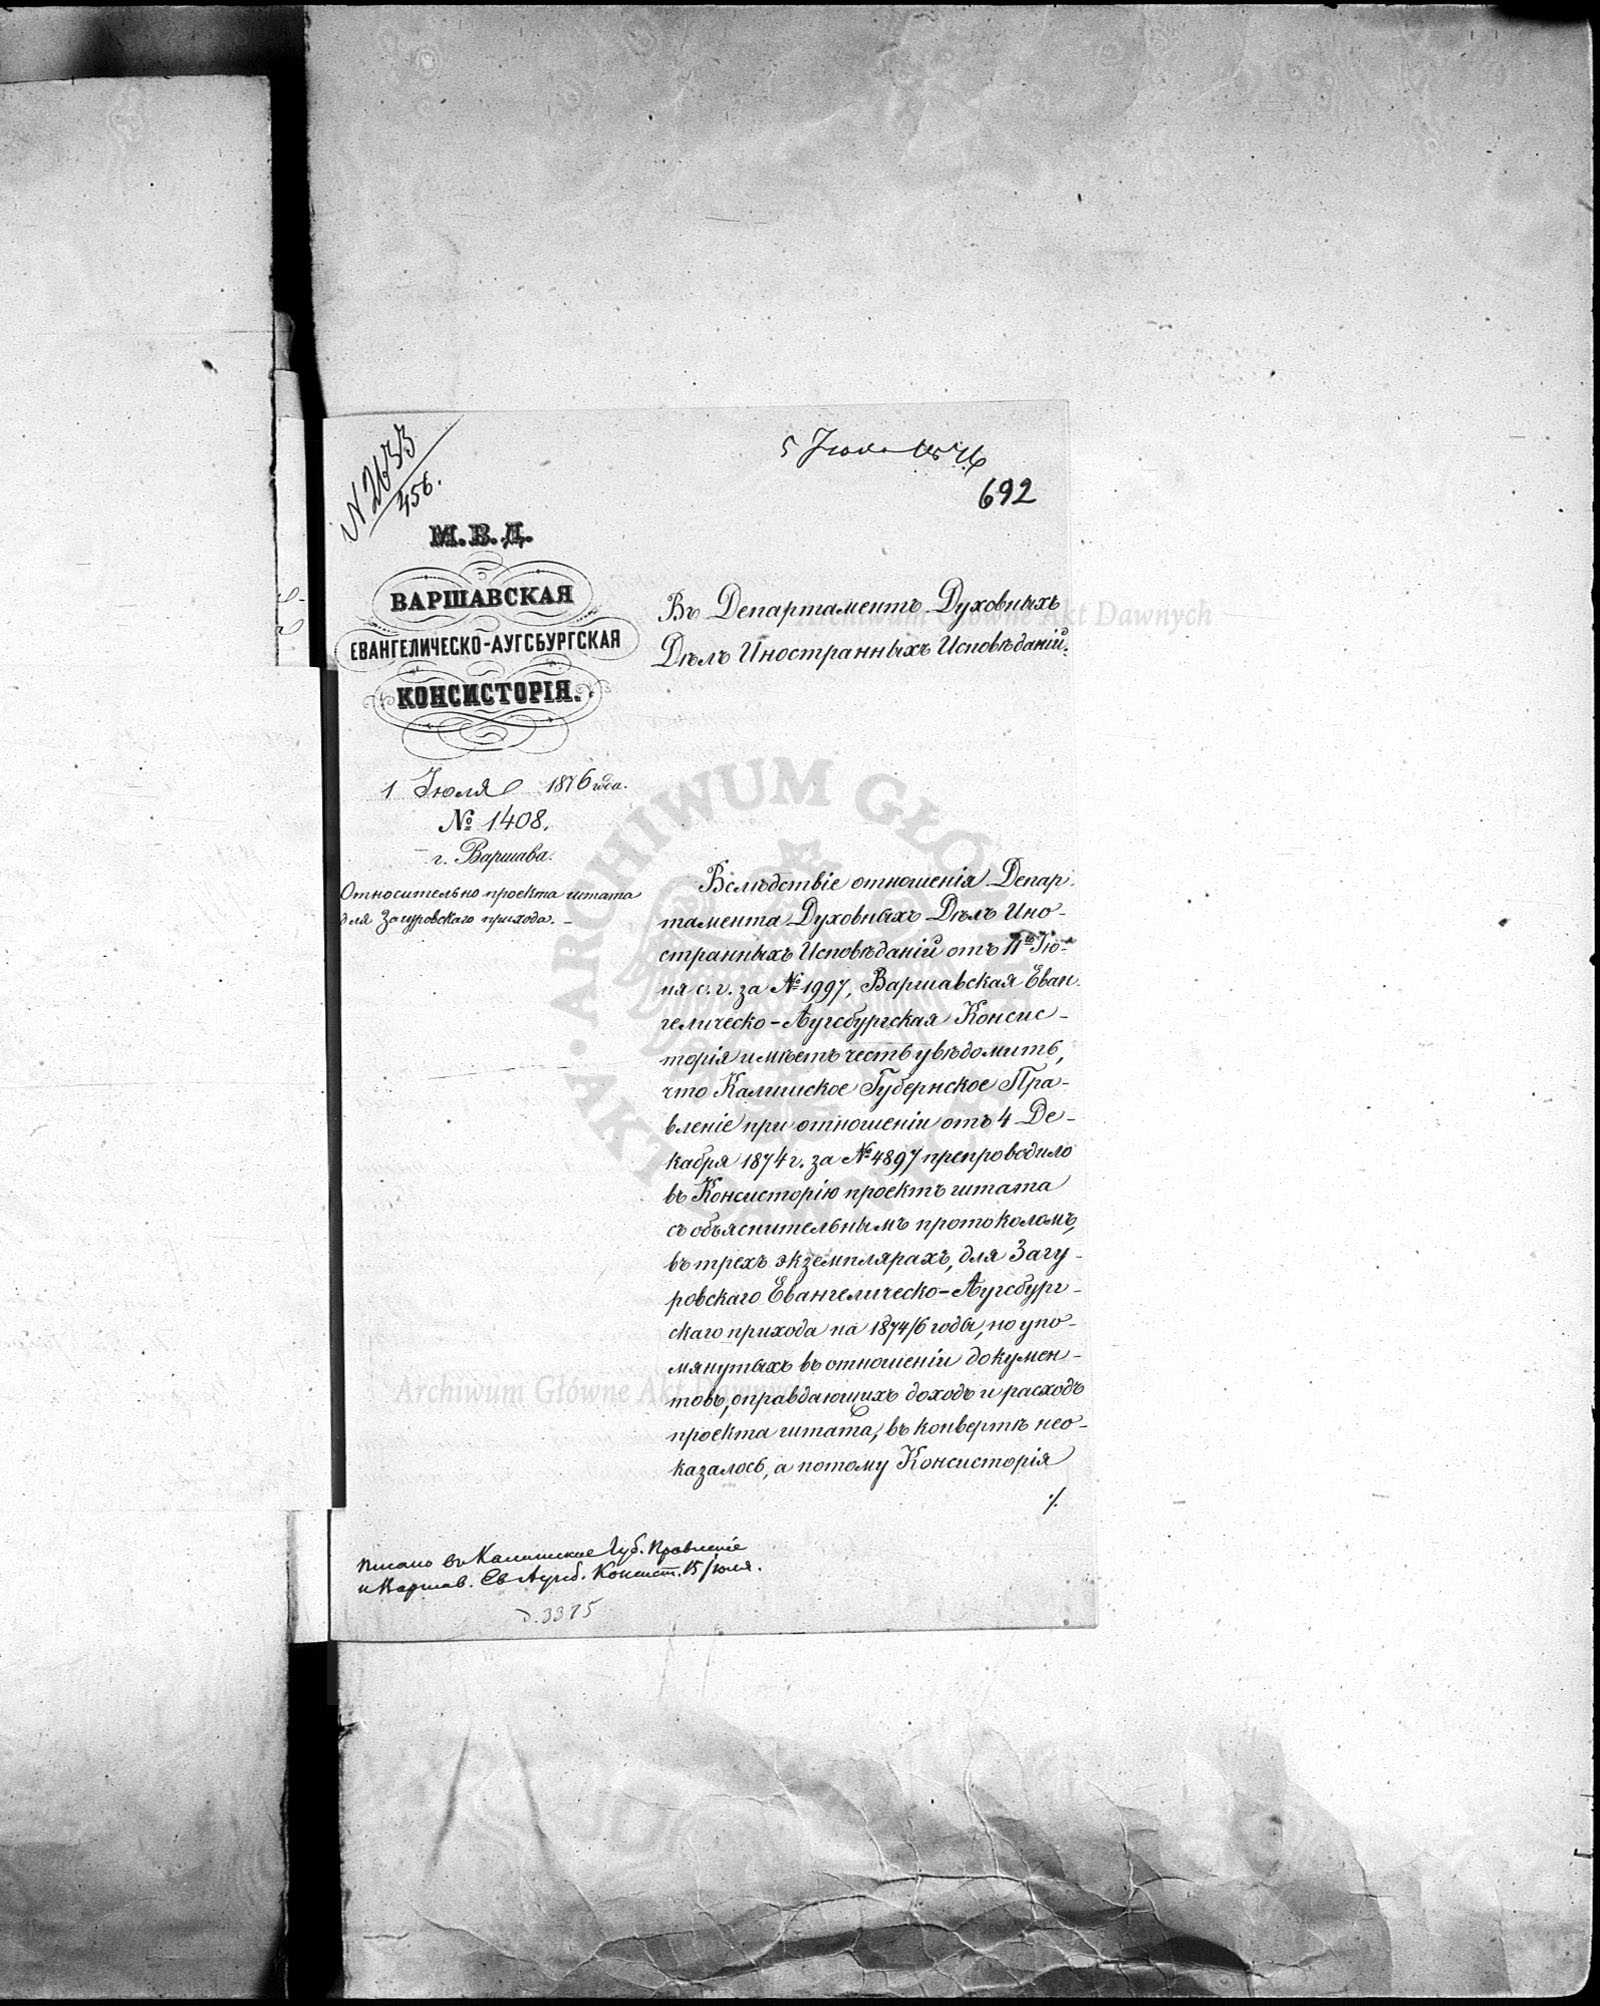 N 2633
456.
5 Іюля 1876
692
М.В.Д.
ВАРШАВСКАЯ
ЕВАНГЕЛИЧЕСКО-АУГСБУРГСКАЯ
КОНСИСТОРІЯ.
1 Іюля 1876 года.
№ 1408.
г. Варшава.
Относительно проекта штата
для Загуровскаго прихода. –
Въ Департаментъ Духовныхъ
Дѣлъ Иностранныхъ Исповѣданій.
Вслѣдствіе отношенія Депар-
тамента Духовныхъ Дѣлъ Ино-
странныхъ Исповѣданій отъ 11го Ію-
ня с. г. за № 1997, Варшавская Еван-
гелическо-Аугсбургская Консис-
торія имѣетъ честь увѣдомить,
что Калишское Губернское Пра-
вленіе при отношеніи отъ 4 Де-
кабря 1874 г. за № 4897 препроводило
въ Консисторію проектъ штата
съ объяснительнымъ протоколомъ,
въ трехъ экземплярахъ, для Загу-
ровскаго Евангелическо-Аугсбург-
скаго прихода на 1874/6 годы, но упо-
мянутыхъ въ отношеніи докумен-
товъ, оправдающихъ доходъ и расходъ
проекта штата, въ конвертѣ нео-
казалось, а потому Консисторія
·/.
Писано въ Калишское Губ. Правленіе
и Варшав. Ев Аугсб. Консист. 15 Іюля.
д. 3375
Archiwum Główne Akt Dawnych
ARCHIWUM GŁÓWNE AKT DAWNYCH
Archiwum Główne Akt Dawnych